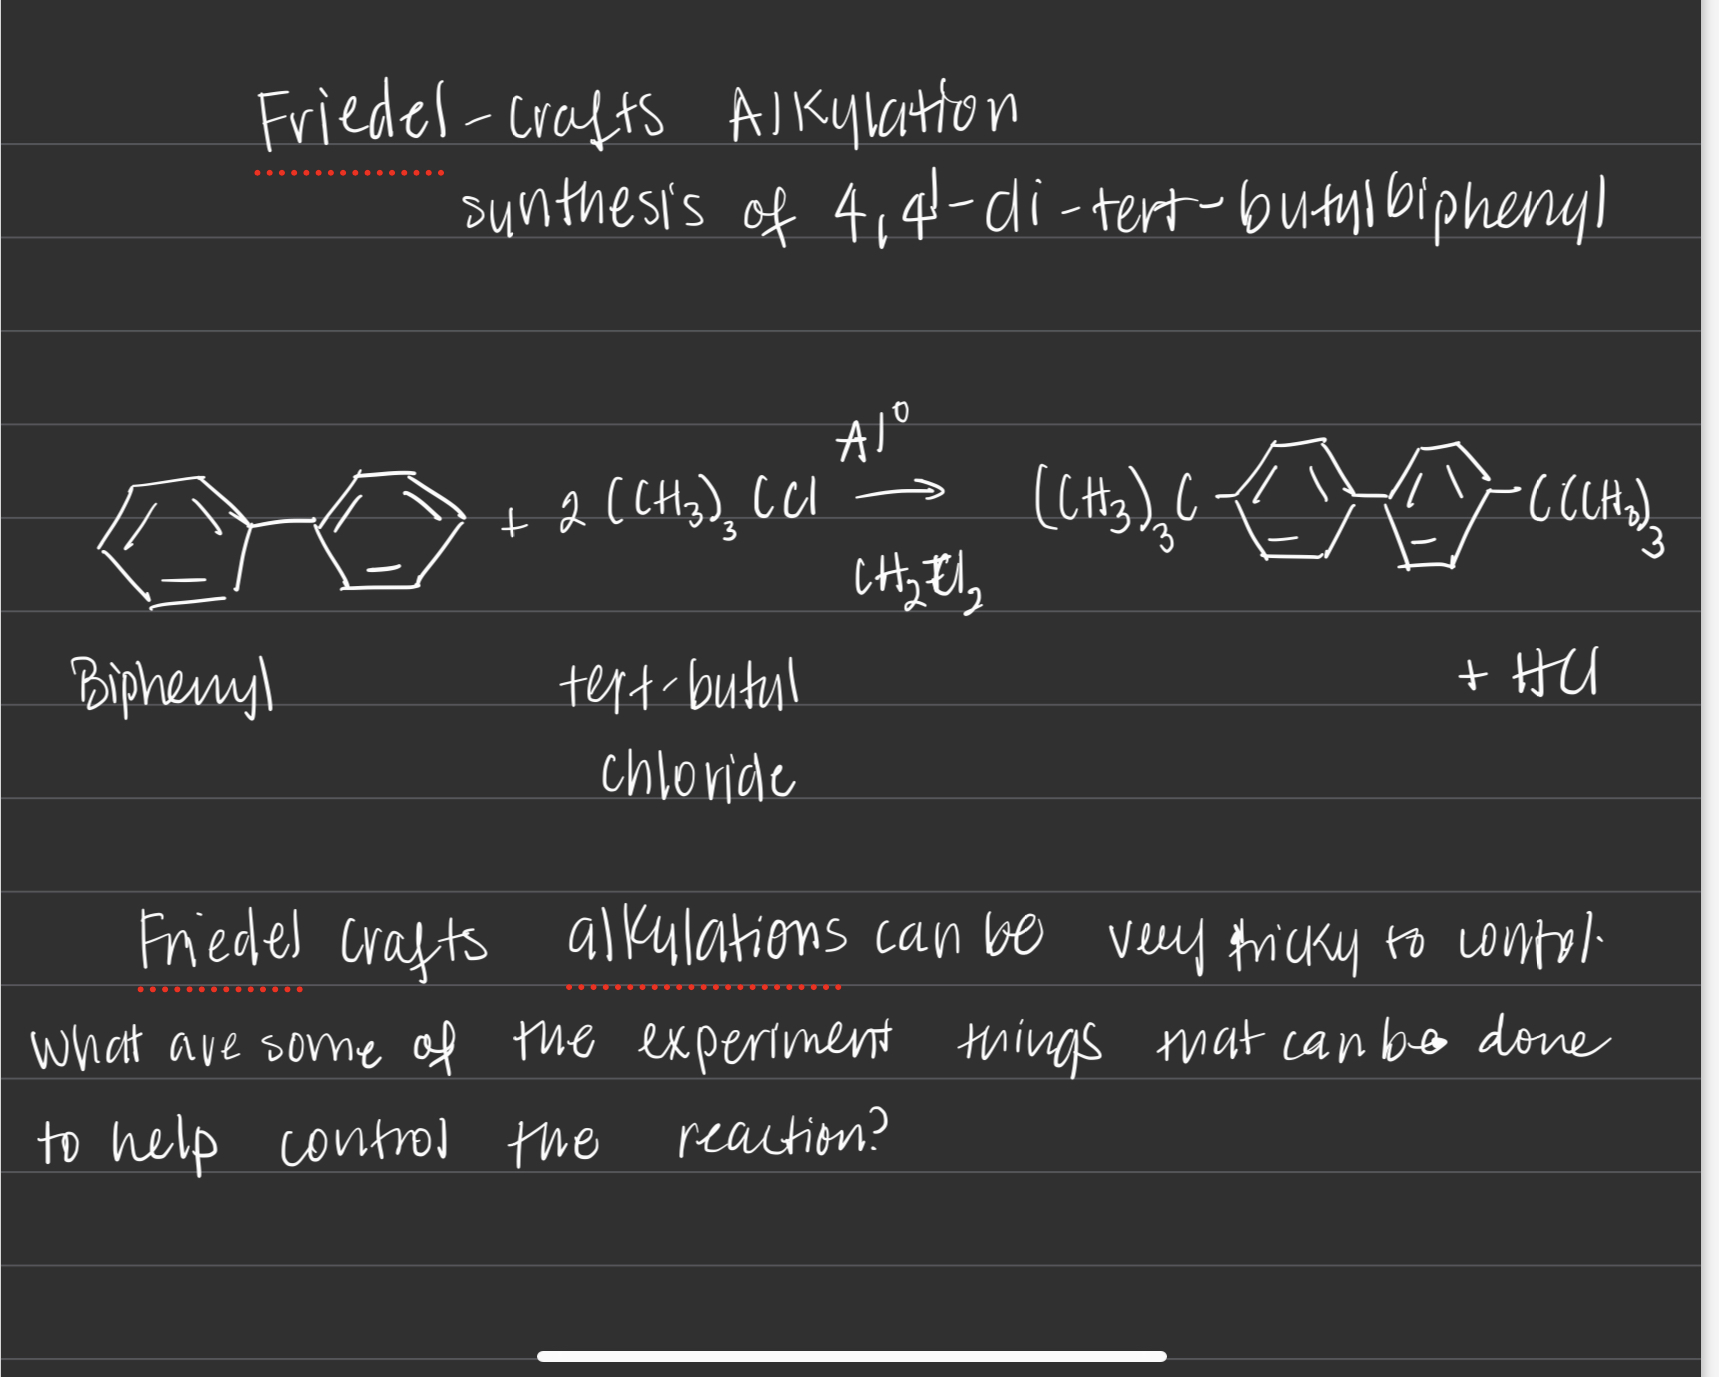 Friedel-crafts Alkylation
synthesis of 4,4'-di-tert-butylbiphenyl
+ 2 (CH₃)₃CCl Al⁰ → CH₂Cl₂ (CH₃)₃C C(CH₃)₃
Biphenyl tert-butyl + HCl
chloride
Friedel Crafts alkylations can be very tricky to control.
What are some of the experiment things that can be done
to help control the reaction?